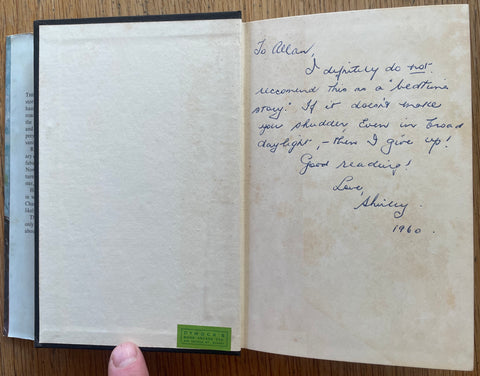 To Allan,
I definitely do not
reccomend this as a "bedtime
story." If it doesn't make
you shudder, Even in broad
daylight, - then I give up!
Good reading!
Love,
Shirley.
1960.
DYMOCK'S
BOOK ARCADE LTD